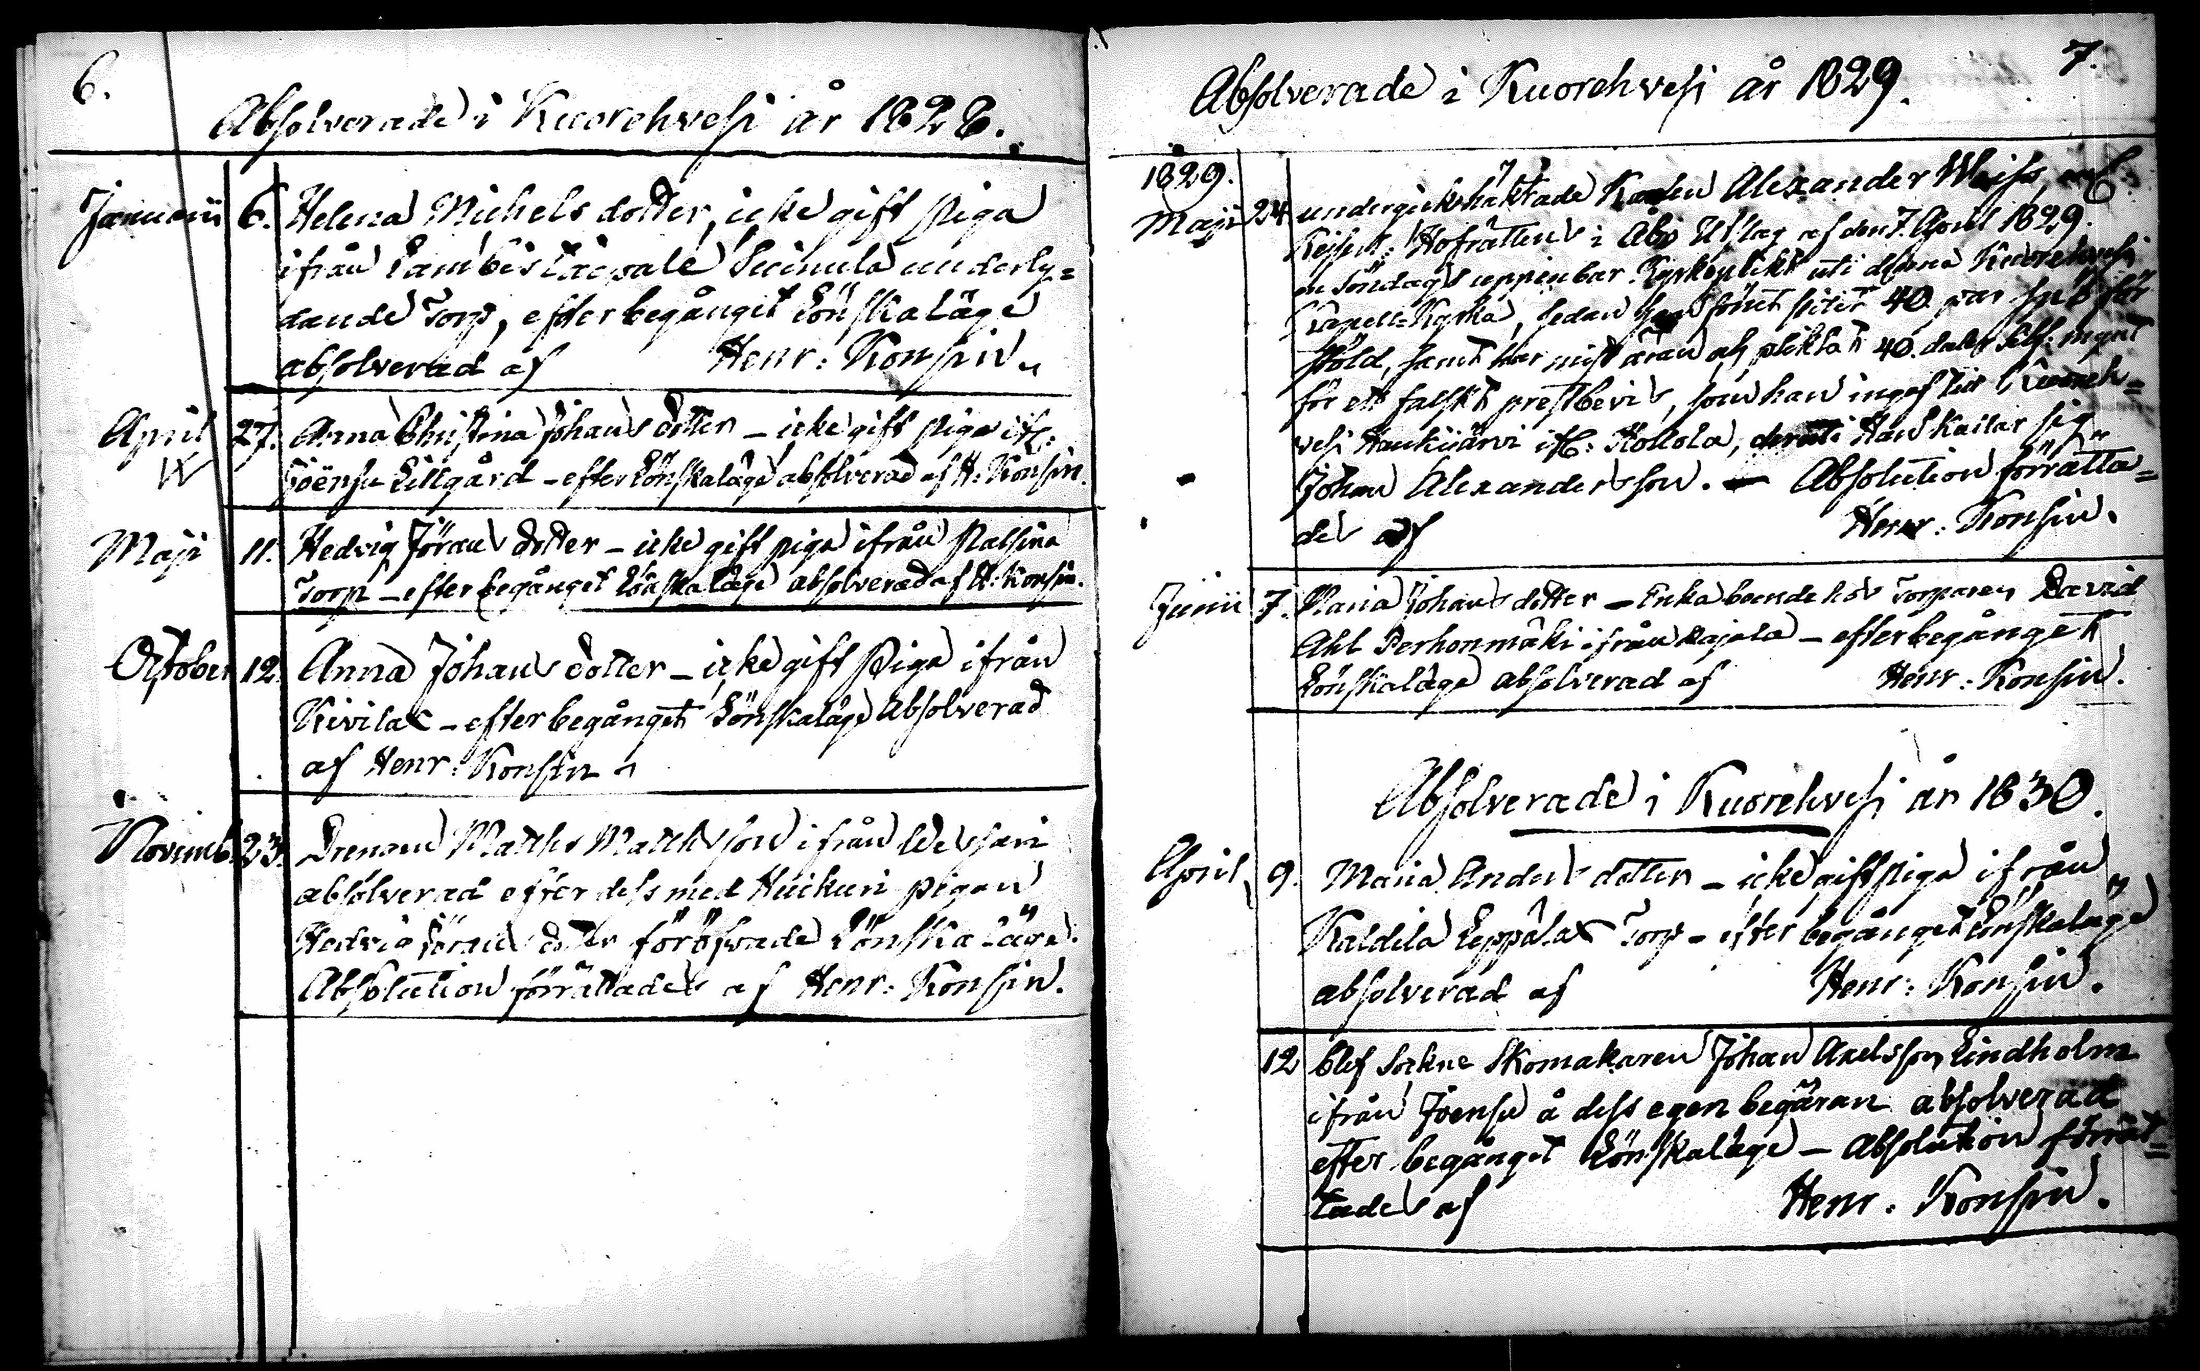 6.
Absolverade i Kuorehvesi år 1828.
Januarii 6. Helena Michels dotter, icke gift Piga
ifrån underly=
dande Torp, efter begånget Lönskaläge
absolverad af Henr: Konsin.
April 27. Anna Christina Johans dotter – icke gift Piga ifr:
Joensu Lillgård – efter Lönskaläge absolverad af H: Konsin.
Maji 11. Hedvig Jörans dotter – icke gift piga ifrån
Torp – efter begånget Lönskaläge absolverad af H: Konsin.
October 12. Anna Johans dotter – icke gift Piga ifrån
Kivilax – efter begånget Lönskaläge Absolverad
af Henr: Konsin
Novemb. 23. Drengen Matths Matthsson ifrån
absolverad efter dess med Huikuri pigan
Hedvig Jörans dotter föröfvade Lönska läge.
Absolution förrättades af Henr: Konsin.
7.
Absolverade i Kuorehvesi år 1829.
1829.
Maji 24 undergick häktade Karlen Alexander Weiss,
Kejserl: Hofrättens i Åbo Utslag af den 7. April 1829.
en Söndags uppenbar Kyrkoplikt uti denna Kuorehvesi
Capell-Kyrka, sedan han förut slitit 40 par spö för
stöld, samt har mist äran och pliktat 40. daler Silf: mynt
för ett falskt prestbevis, som han ingaf till Kuoreh=
vesi Haukijärvi ifr: Kollola, deruti Han kallar sig
Johan Alexandersson. – Absolution förrätta=
des af Henr: Konsin.
Junii 7. Maria Johans dotter – Enka boende hos Torparen David
Ahl Perhonmäki ifrån Kajala – efter begånget
Lönskaläge absolverad af Henr: Konsin.
Absolverade i Kuorehvesi år 1830.
April 9. Maria Anders dotter – icke gift piga ifrån
Kaldila Leppälax Torp – efter begånget Lönskaläge
absolverad af Henr: Konsin.
12 blef Sockne Skomakaren Johan Axelsson Lindholm
ifrån Joensu å dess egen begäran absolverad
efter begånget Lönskaläge – Absolution förrät=
tades af Henr. Konsin.